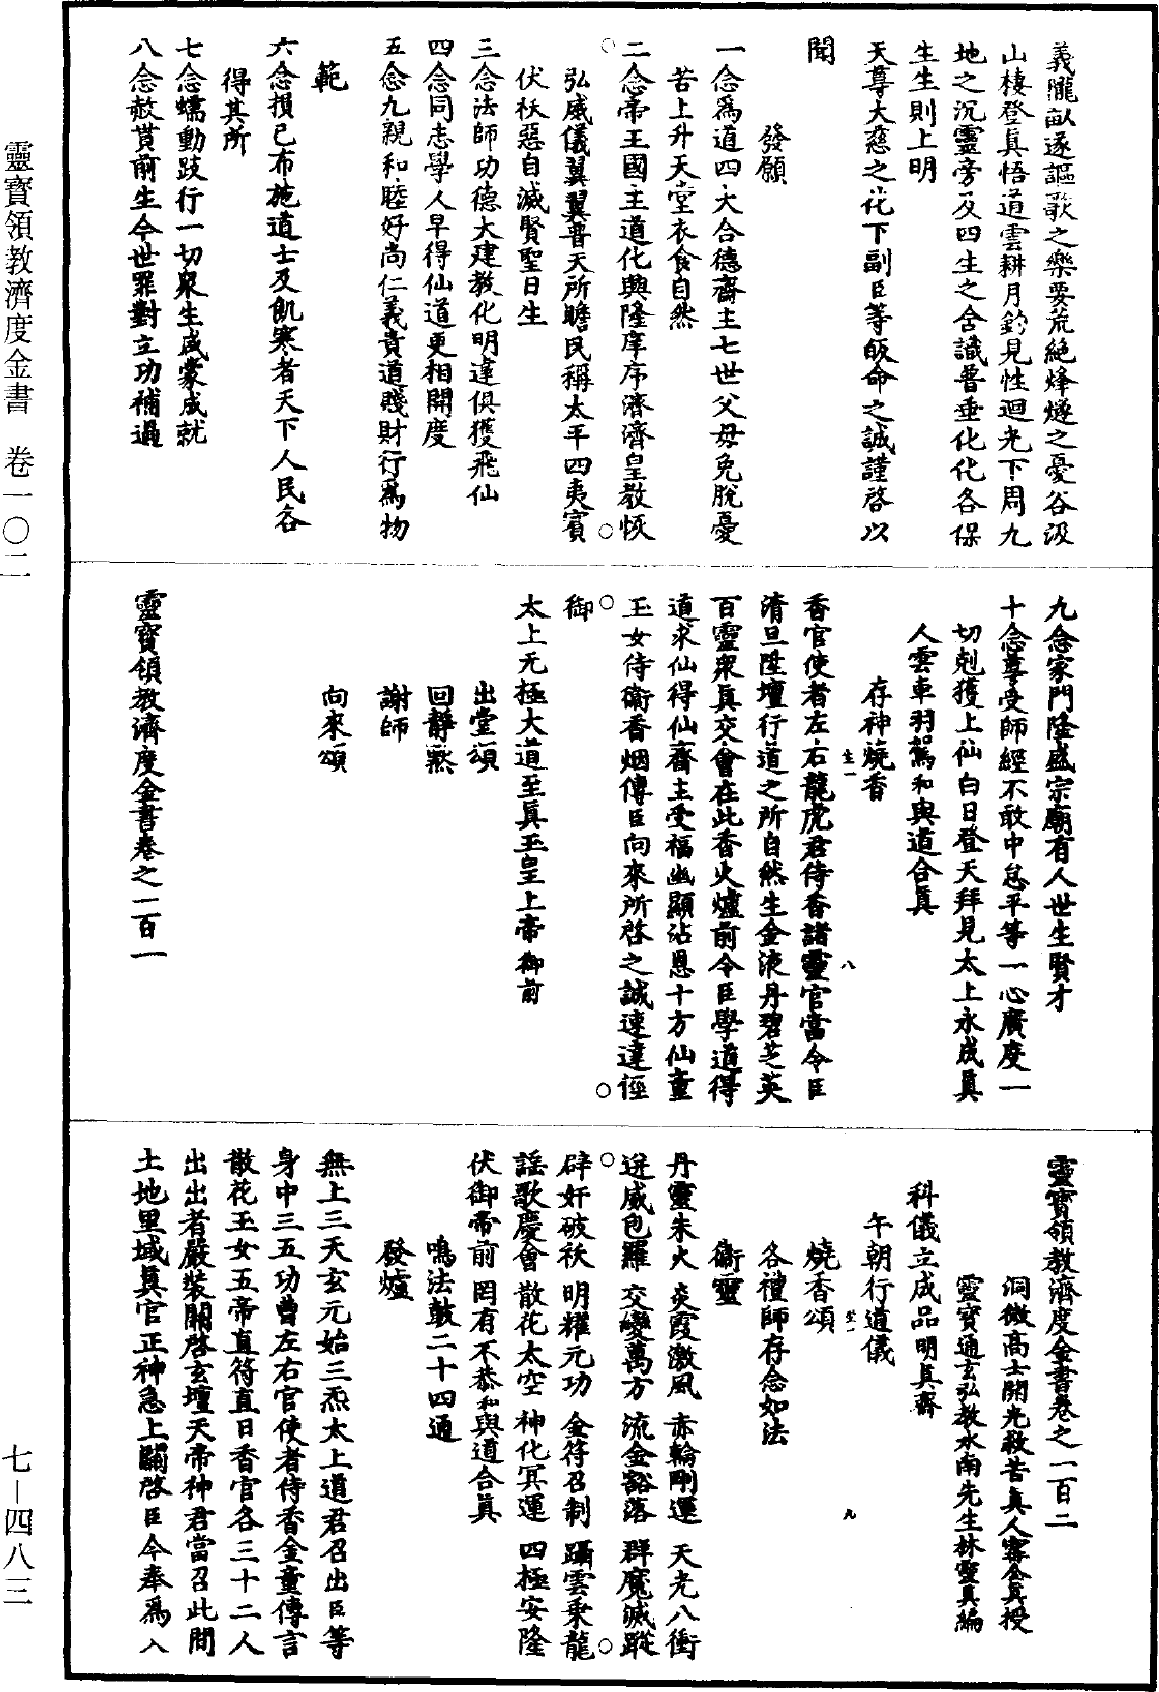 義隴畝遂謳歌之樂要荒絶烽燧之憂谷汲
山棲登真悟道雲耕月釣見性迴光下周九
地之沉靈旁及四生之含識普垂化化各保
生生則上明
天尊大慈之化下副臣等皈命之誠謹啓以
聞
發願
一念爲道四大合德齋主七世父母免脫憂
苦上升天堂衣食自然
二念帝王國主道化興隆庠序濟濟皇教恢
弘威儀翼翼普天所瞻民稱太平四夷賓
伏祅惡自滅賢聖日生
三念法師功德大建教化明達俱獲飛仙
四念同志學人早得仙道更相開度
五念九親和睦好尚仁義貴道賤財行爲物
範
六念損己布施道士及飢寒者天下人民各
得其所
七念蠕動跂行一切衆生咸蒙成就
八念赦貰前生今世罪對立功補過
九念家門隆盛宗廟有人世生賢才
十念尊受師經不敢中怠平等一心廣度一
切剋獲上仙白日登天拜見太上永成真
人雲車羽駕和與道合真
存神燒香
香官使者左右龍虎君侍香諸靈官當令臣
清旦陞壇行道之所自然生金液丹碧芝英
百靈衆真交會在此香火爐前令臣學道得
道求仙得仙齋主受福幽顯沾恩十方仙童
玉女侍衛香烟傳臣向來所啓之誠速達徑
御
太上无極大道至真玉皇上帝御前
出堂頌
回靜默
謝師
向來頌
靈寶領教濟度金書卷之一百一
靈寶領教濟度金書卷之一百二
洞微高士開光救苦真人寗全真授
靈寶通玄弘教水南先生林靈真編
科儀立成品明真齋
午朝行道儀
燒香頌
各禮師存念如法
衛靈
丹靈朱火 炎霞激風 赤輪剛運 天光八衝
迸威包羅 交變萬方 流金豁落 群魔滅蹤
辟奸破祅 明耀元功 金符召制 躡雲乘龍
謡歌慶會 散花太空 神化冥運 四極安隆
伏御帝前 罔有不恭和與道合真
鳴法鼓二十四通
發爐
無上三天玄元始三炁太上道君召出臣等
身中三五功曹左右官使者侍香金童傳言
散花玉女五帝直符直日香官各三十二人
出出者嚴裝關啓玄壇天帝神君當召此間
土地里域真官正神急上關啓臣今奉爲入
靈寶領教濟度金書 卷一〇二
七—四八三